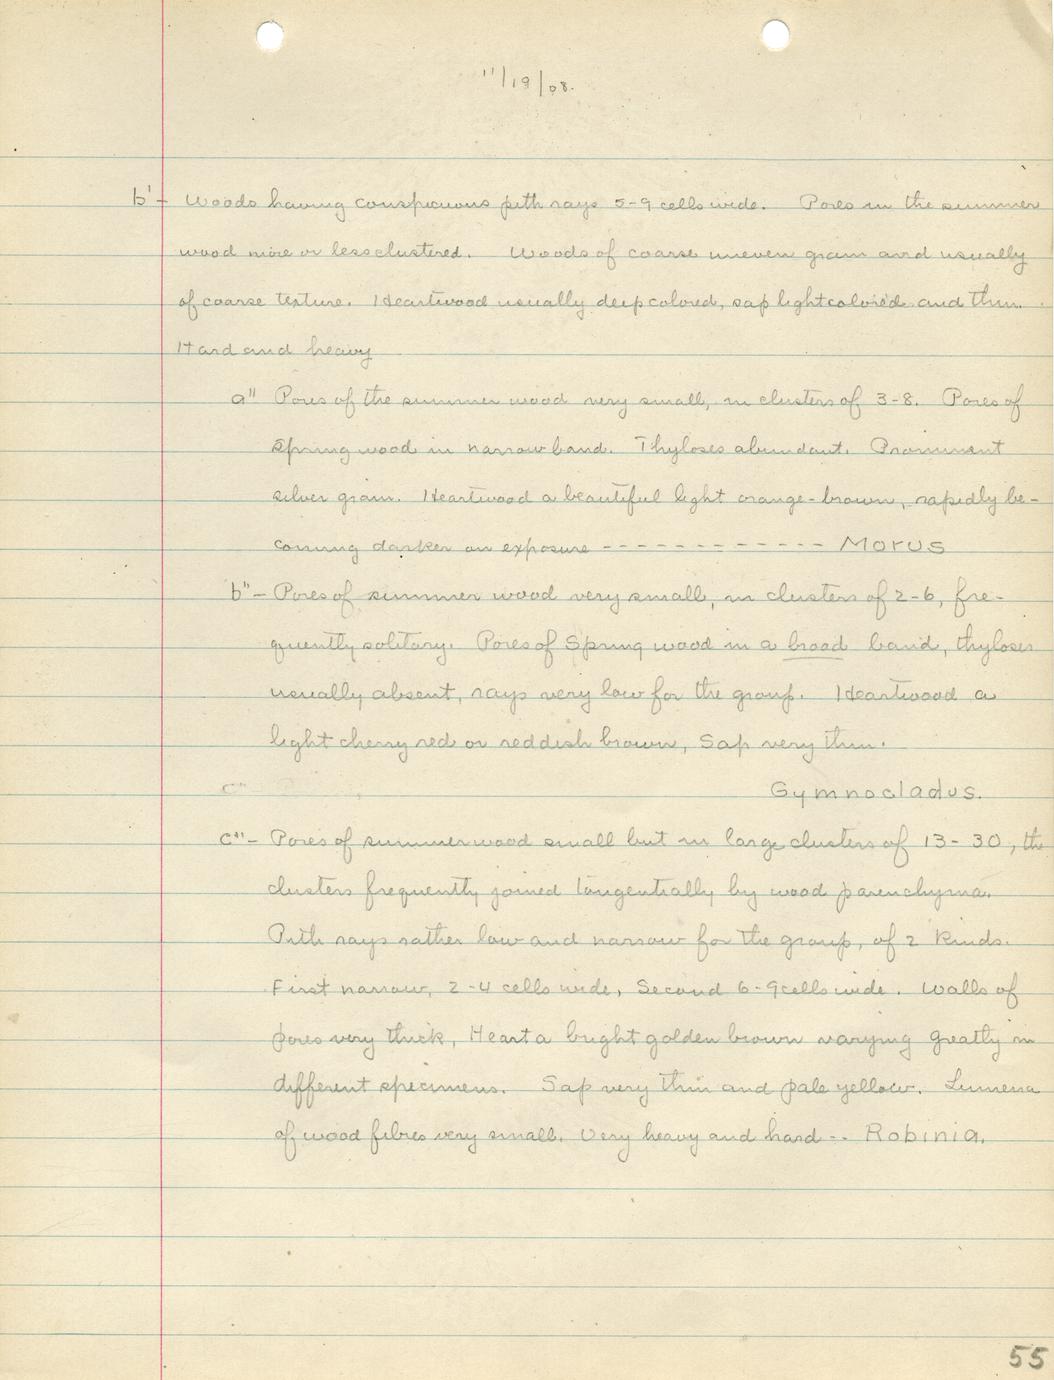 11/19/08.
b' - Woods having conspicuous pith rays 5-9 cells wide. Pores in the summer
wood more or less clustered. Woods of coarse uneven grain and usually
of coarse texture. Heartwood usually deep colored, sap light colored and thin.
Hard and heavy
a" Pores of the summer wood very small, in clusters of 3-8. Pores of
Spring wood in narrow band. Thyloses abundant. Prominent
silver grain. Heartwood a beautiful light orange-brown, rapidly be-
coming darker on exposure ------------ Morus
b" - Pores of summer wood very small, in clusters of 2-6, fre-
quently solitary. Pores of Spring wood in a broad band, thyloses
usually absent, rays very low for the group. Heartwood a
light cherry red or reddish brown, Sap very thin.
c"
Gymnocladus.
c" - Pores of summer wood small but in large clusters of 13-30, the
clusters frequently joined tangentially by wood parenchyma.
Pith rays rather low and narrow for the group, of 2 kinds.
First narrow, 2-4 cells wide, Second 6-9 cells wide. Walls of
pores very thick, Heart a bright golden brown varying greatly in
different specimens. Sap very thin and pale yellow. Lumena
of wood fibres very small. Very heavy and hard -- Robinia.
55